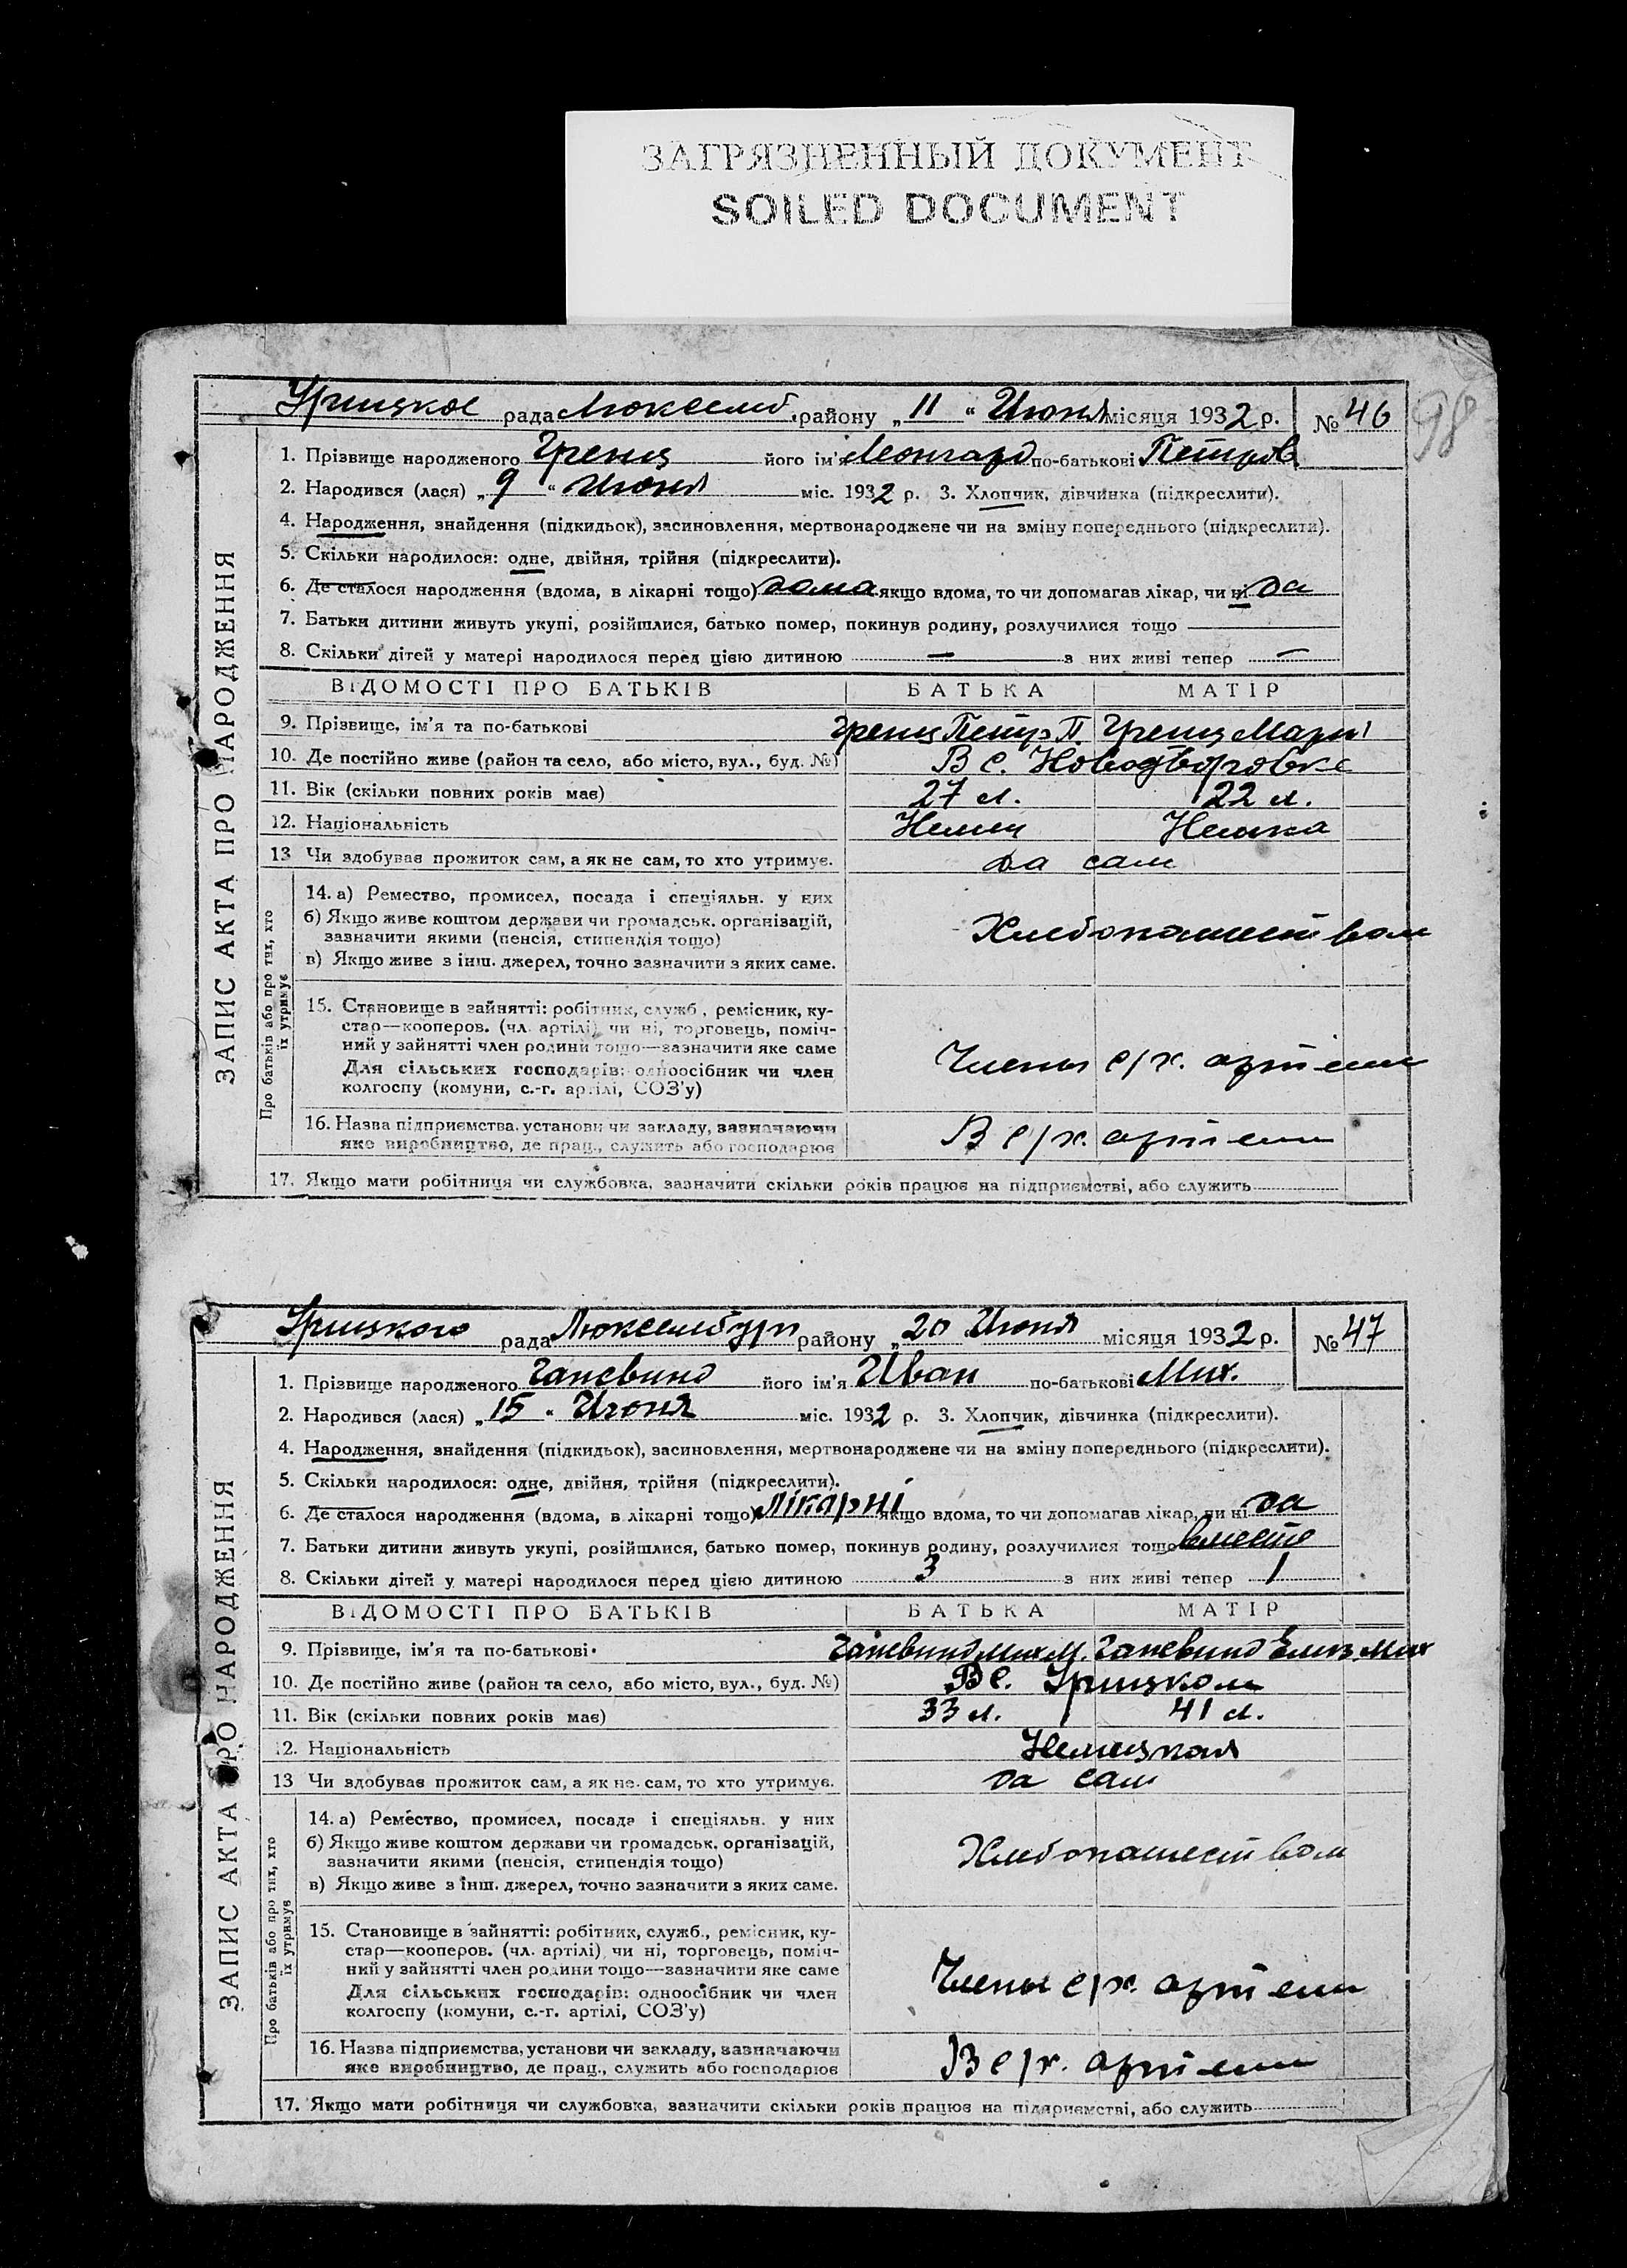 ЗАГРЯЗНЕННЫЙ ДОКУМЕНТ
SOILED DOCUMENT
98
Урицкое рада Люксемб. району „ 11 “ Июня місяця 1932 р. № 46
ЗАПИС АКТА ПРО НАРОДЖЕННЯ
1. Прізвище народженого Гренц його ім'я Леонгард по-батькові Петров
2. Народився (лася) „ 9 “ Июня міс. 1932 р. 3. Хлопчик, дівчинка (підкреслити).
4. Народження, знайдення (підкидьок), засиновлення, мертвонароджене чи на зміну попереднього (підкреслити).
5. Скільки народилося: одне, двійня, трійня (підкреслити).
6. Де сталося народження (вдома, в лікарні тощо) дома якщо вдома, то чи допомагав лікар, чи ні да
7. Батьки дитини живуть укупі, розійшлися, батько помер, покинув родину, розлучилися тощо —
8. Скільки дітей у матері народилося перед цією дитиною — з них живі тепер —
ВІДОМОСТІ ПРО БАТЬКІВ БАТЬКА МАТІР
9. Прізвище, ім'я та по-батькові Гренц Петр П. Гренц Мария
10. Де постійно живе (район та село, або місто, вул., буд. №) В с. Новодворовке
11. Вік (скільки повних років має) 27 л. 22 л.
12. Національність Немец Немка
13 Чи здобував прожиток сам, а як не сам, то хто утримує. да сам
Про батьків або про тих, хто їх утримує
14. а) Ремество, промисел, посада і спеціяльн. у них
б) Якщо живе коштом держави чи громадськ. організацій,
зазначити якими (пенсія, стипендія тощо) Хлебопашеством
в) Якщо живе з інш. джерел, точно зазначити з яких саме.
15. Становище в зайнятті: робітник, служб., ремісник, ку-
стар—кооперов. (чл. артілі) чи ні, торговець, поміч-
ний у зайнятті член родини тощо—зазначити яке саме
Для сільських господарів: одноосібник чи член Члены с/х. артели
колгоспу (комуни, с.-г. артілі, СОЗ'у)
16. Назва підприємства, установи чи закладу, зазначаючи
яке виробництво, де прац., служить або господарює В с/х. артели
17. Якщо мати робітниця чи службовка, зазначити скільки років працює на підприємстві, або служить
Урицкого рада Люксембург району „ 20 Июня місяця 1932 р. № 47
ЗАПИС АКТА ПРО НАРОДЖЕННЯ
1. Прізвище народженого його ім'я Иван по-батькові Мих.
2. Народився (лася) „ 15 “ Июня міс. 1932 р. 3. Хлопчик, дівчинка (підкреслити).
4. Народження, знайдення (підкидьок), засиновлення, мертвонароджене чи на зміну попереднього (підкреслити).
5. Скільки народилося: одне, двійня, трійня (підкреслити).
6. Де сталося народження (вдома, в лікарні тощо) Лікарні якщо вдома, то чи допомагав лікар, чи ні да
7. Батьки дитини живуть укупі, розійшлися, батько помер, покинув родину, розлучилися тощо вместе
8. Скільки дітей у матері народилося перед цією дитиною 3 з них живі тепер 1
ВІДОМОСТІ ПРО БАТЬКІВ БАТЬКА МАТІР
9. Прізвище, ім'я та по-батькові Мих М. Елиз. Мих
10. Де постійно живе (район та село, або місто, вул., буд. №) В с. Урицком
11. Вік (скільки повних років має) 33 л. 41 л.
12. Національність Немецкая
13 Чи здобував прожиток сам, а як не сам, то хто утримує. да сам
Про батьків або про тих, хто їх утримує
14. а) Ремество, промисел, посада і спеціяльн. у них
б) Якщо живе коштом держави чи громадськ. організацій, Хлебопашеством
зазначити якими (пенсія, стипендія тощо)
в) Якщо живе з інш. джерел, точно зазначити з яких саме.
15. Становище в зайнятті: робітник, служб., ремісник, ку-
стар—кооперов. (чл. артілі) чи ні, торговець, поміч-
ний у зайнятті член родини тощо—зазначити яке саме
Для сільських господарів: одноосібник чи член Члены с/х. артели
колгоспу (комуни, с.-г. артілі, СОЗ'у)
16. Назва підприємства, установи чи закладу, зазначаючи
яке виробництво, де прац., служить або господарює В с/х. артели
17. Якщо мати робітниця чи службовка, зазначити скільки років працює на підприємстві, або служить